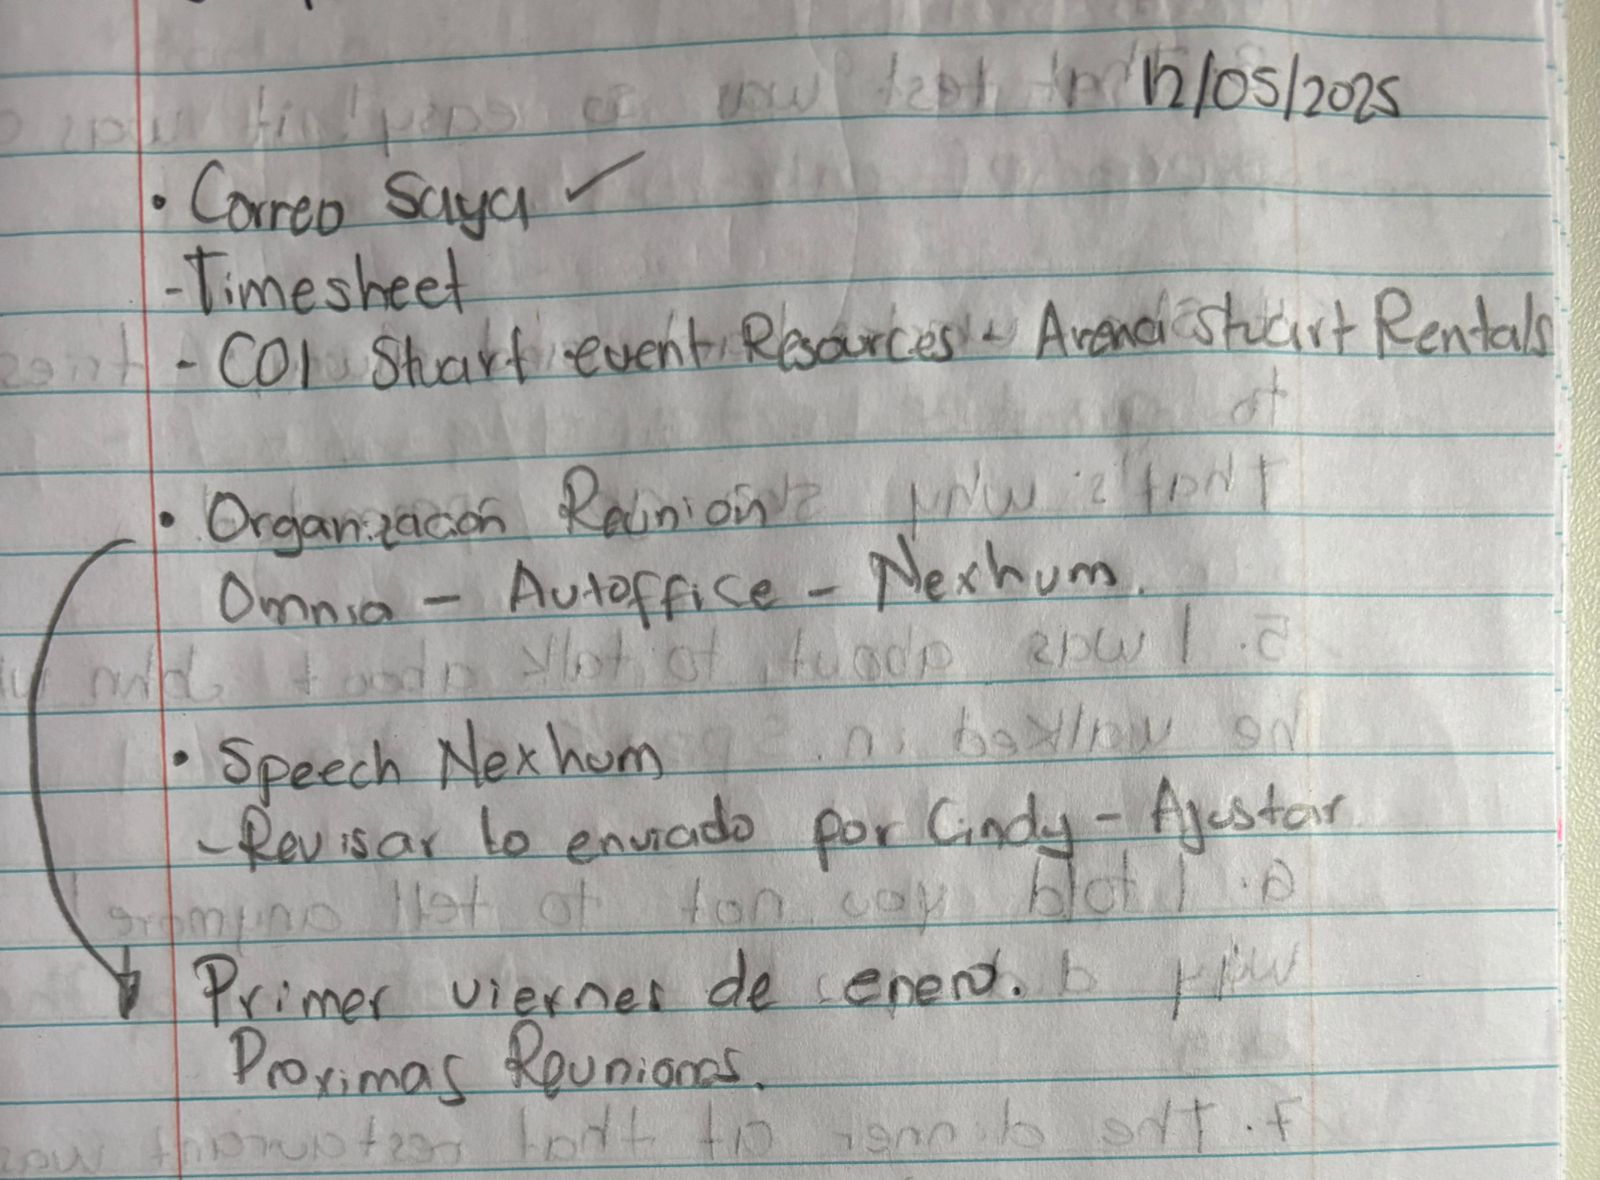 12/05/2025
• Correo Saya ✓
- Timesheet
- COI Stuart event Resources - Arena Stuart Rentals
• Organización Reunión
Omnia - Autoffice - Nexhum.
• Speech Nexhum
- Revisar lo enviado por Cindy - Ajustar
Primer viernes de enero.
Proximas Reuniones.